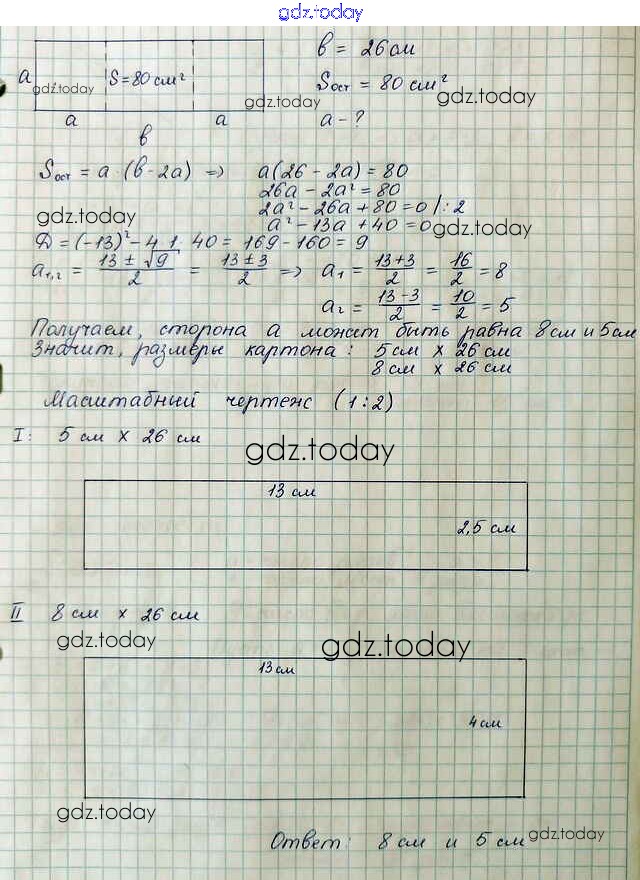 gdz.today
a S = 80 см² gdz.today
b = 26 см
Sост = 80 см² gdz.today
gdz.today
a a a - ?
b
Sост = a · (b - 2a) => a(26 - 2a) = 80
26a - 2a² = 80
gdz.today 2a² - 26a + 80 = 0 | : 2
a² - 13a + 40 = 0 gdz.today
Д = (-13)² - 4 · 1 · 40 = 169 - 160 = 9
a₁,₂ = (13 ± √9)/2 = (13 ± 3)/2 => a₁ = (13+3)/2 = 16/2 = 8
a₂ = (13-3)/2 = 10/2 = 5
Получаем, сторона a может быть равна 8 см и 5 см
Значит, размеры картона: 5 см x 26 см
8 см x 26 см
Масштабный чертеж (1:2)
I: 5 см x 26 см
gdz.today
13 см
2,5 см
II 8 см x 26 см
gdz.today gdz.today
13 см
4 см
gdz.today
Ответ: 8 см и 5 см gdz.today